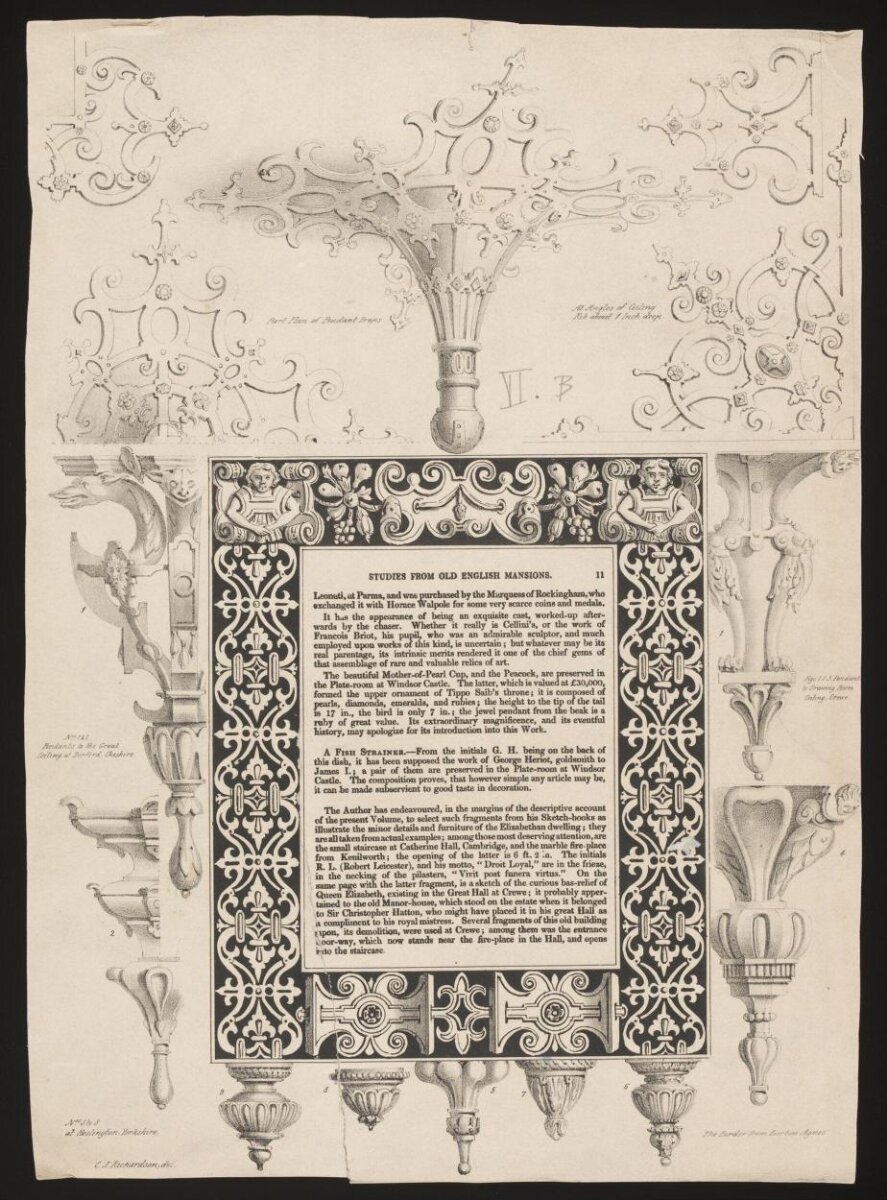 Part Plan of Pendant Drops
At Angles of Ceiling
Rib about 1 Inch deep.
VII. B
STUDIES FROM OLD ENGLISH MANSIONS. 11
Leonati, at Parma, and was purchased by the Marquess of Rockingham, who
exchanged it with Horace Walpole for some very scarce coins and medals.
It has the appearance of being an exquisite cast, worked-up after-
wards by the chaser. Whether it really is Cellini's, or the work of
Francois Briot, his pupil, who was an admirable sculptor, and much
employed upon works of this kind, is uncertain; but whatever may be its
real parentage, its intrinsic merits rendered it one of the chief gems of
that assemblage of rare and valuable relics of art.
The beautiful Mother-of-Pearl Cup, and the Peacock, are preserved in
the Plate-room at Windsor Castle. The latter, which is valued at £30,000,
formed the upper ornament of Tippo Saib's throne; it is composed of
pearls, diamonds, emeralds, and rubies; the height to the tip of the tail
is 17 in., the bird is only 7 in.; the jewel pendant from the beak is a
ruby of great value. Its extraordinary magnificence, and its eventful
history, may apologize for its introduction into this Work.
A FISH STRAINER.—From the initials G. H. being on the back of
this dish, it has been supposed the work of George Heriot, goldsmith to
James I.; a pair of them are preserved in the Plate-room at Windsor
Castle. The composition proves, that however simple any article may be,
it can be made subservient to good taste in decoration.
The Author has endeavoured, in the margins of the descriptive account
of the present Volume, to select such fragments from his Sketch-books as
illustrate the minor details and furniture of the Elizabethan dwelling; they
are all taken from actual examples; among those most deserving attention, are
the small staircase at Catherine Hall, Cambridge, and the marble fire-place
from Kenilworth; the opening of the latter is 6 ft. 2 in. The initials
R. L. (Robert Leicester), and his motto, "Droit Loyal," are in the frieze,
in the necking of the pilasters, "Vivit post funera virtus." On the
same page with the latter fragment, is a sketch of the curious bas-relief of
Queen Elizabeth, existing in the Great Hall at Crewe; it probably apper-
tained to the old Manor-house, which stood on the estate when it belonged
to Sir Christopher Hatton, who might have placed it in his great Hall as
a compliment to his royal mistress. Several fragments of this old building
upon, its demolition, were used at Crewe; among them was the entrance
door-way, which now stands near the fire-place in the Hall, and opens
into the staircase
1
Nos 1 & 2
Pendants to the Great
Ceiling at Dorford, Cheshire
2
1
Pendant
to Drawing Room
Ceiling, Crewe.
4
9
8
5
7
6
Nos
at Heslington, Yorkshire
C. J. Richardson, del.
The Border from Burton Agnes